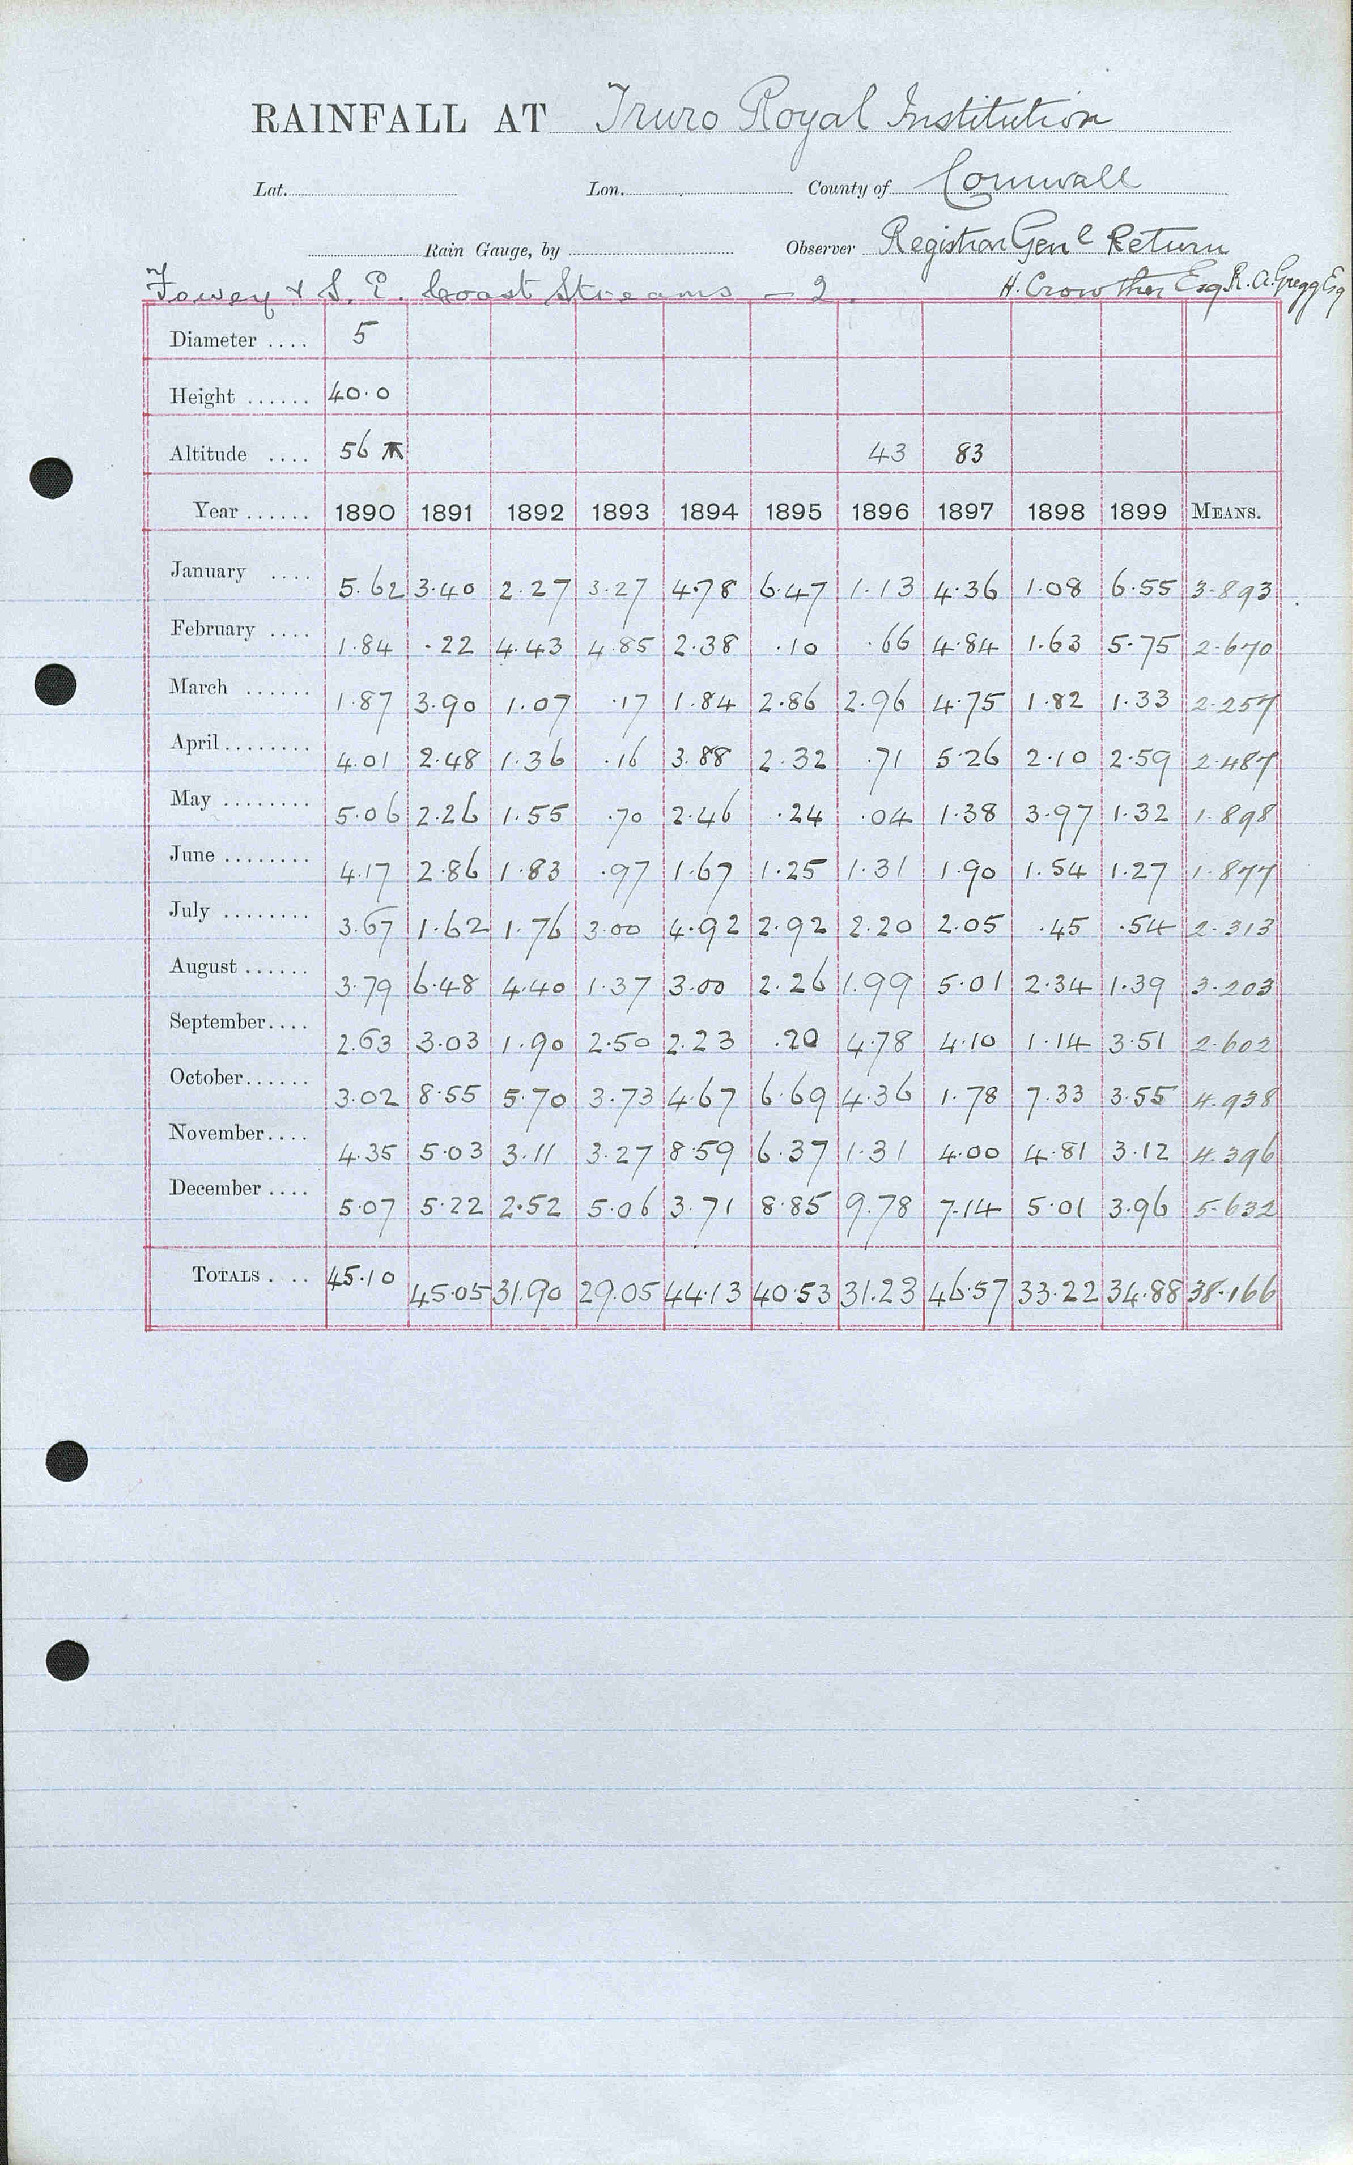 RAINFALL AT Truro Royal Institution
Lat. Lon. County of Cornwall
Rain Gauge, by Observer Registrar Genl Return
Fowey & S. E. Coast Streams - 2. H. Crowther Esq R. A. Gregg Esq
Diameter .... 5
Height ...... 40.0
Altitude .... 56 43 83
Year ...... 1890 1891 1892 1893 1894 1895 1896 1897 1898 1899 MEANS.
January .... 5.62 3.40 2.27 3.27 4.78 6.47 1.13 4.36 1.08 6.55 3.893
February .... 1.84 .22 4.43 4.85 2.38 .10 .66 4.84 1.63 5.75 2.670
March ...... 1.87 3.90 1.07 .17 1.84 2.86 2.96 4.75 1.82 1.33 2.257
April ........ 4.01 2.48 1.36 .16 3.88 2.32 .71 5.26 2.10 2.59 2.487
May ........ 5.06 2.26 1.55 .70 2.46 .24 .04 1.38 3.97 1.32 1.898
June ........ 4.17 2.86 1.83 .97 1.67 1.25 1.31 1.90 1.54 1.27 1.877
July ........ 3.67 1.62 1.76 3.00 4.92 2.92 2.20 2.05 .45 .54 2.313
August ...... 3.79 6.48 4.40 1.37 3.00 2.26 1.99 5.01 2.34 1.39 3.203
September.... 2.63 3.03 1.90 2.50 2.23 .20 4.78 4.10 1.14 3.51 2.602
October...... 3.02 8.55 5.70 3.73 4.67 6.69 4.36 1.78 7.33 3.55 4.938
November.... 4.35 5.03 3.11 3.27 8.59 6.37 1.31 4.00 4.81 3.12 4.396
December .... 5.07 5.22 2.52 5.06 3.71 8.85 9.78 7.14 5.01 3.96 5.632
TOTALS . .. 45.10 45.05 31.90 29.05 44.13 40.53 31.23 46.57 33.22 34.88 38.166